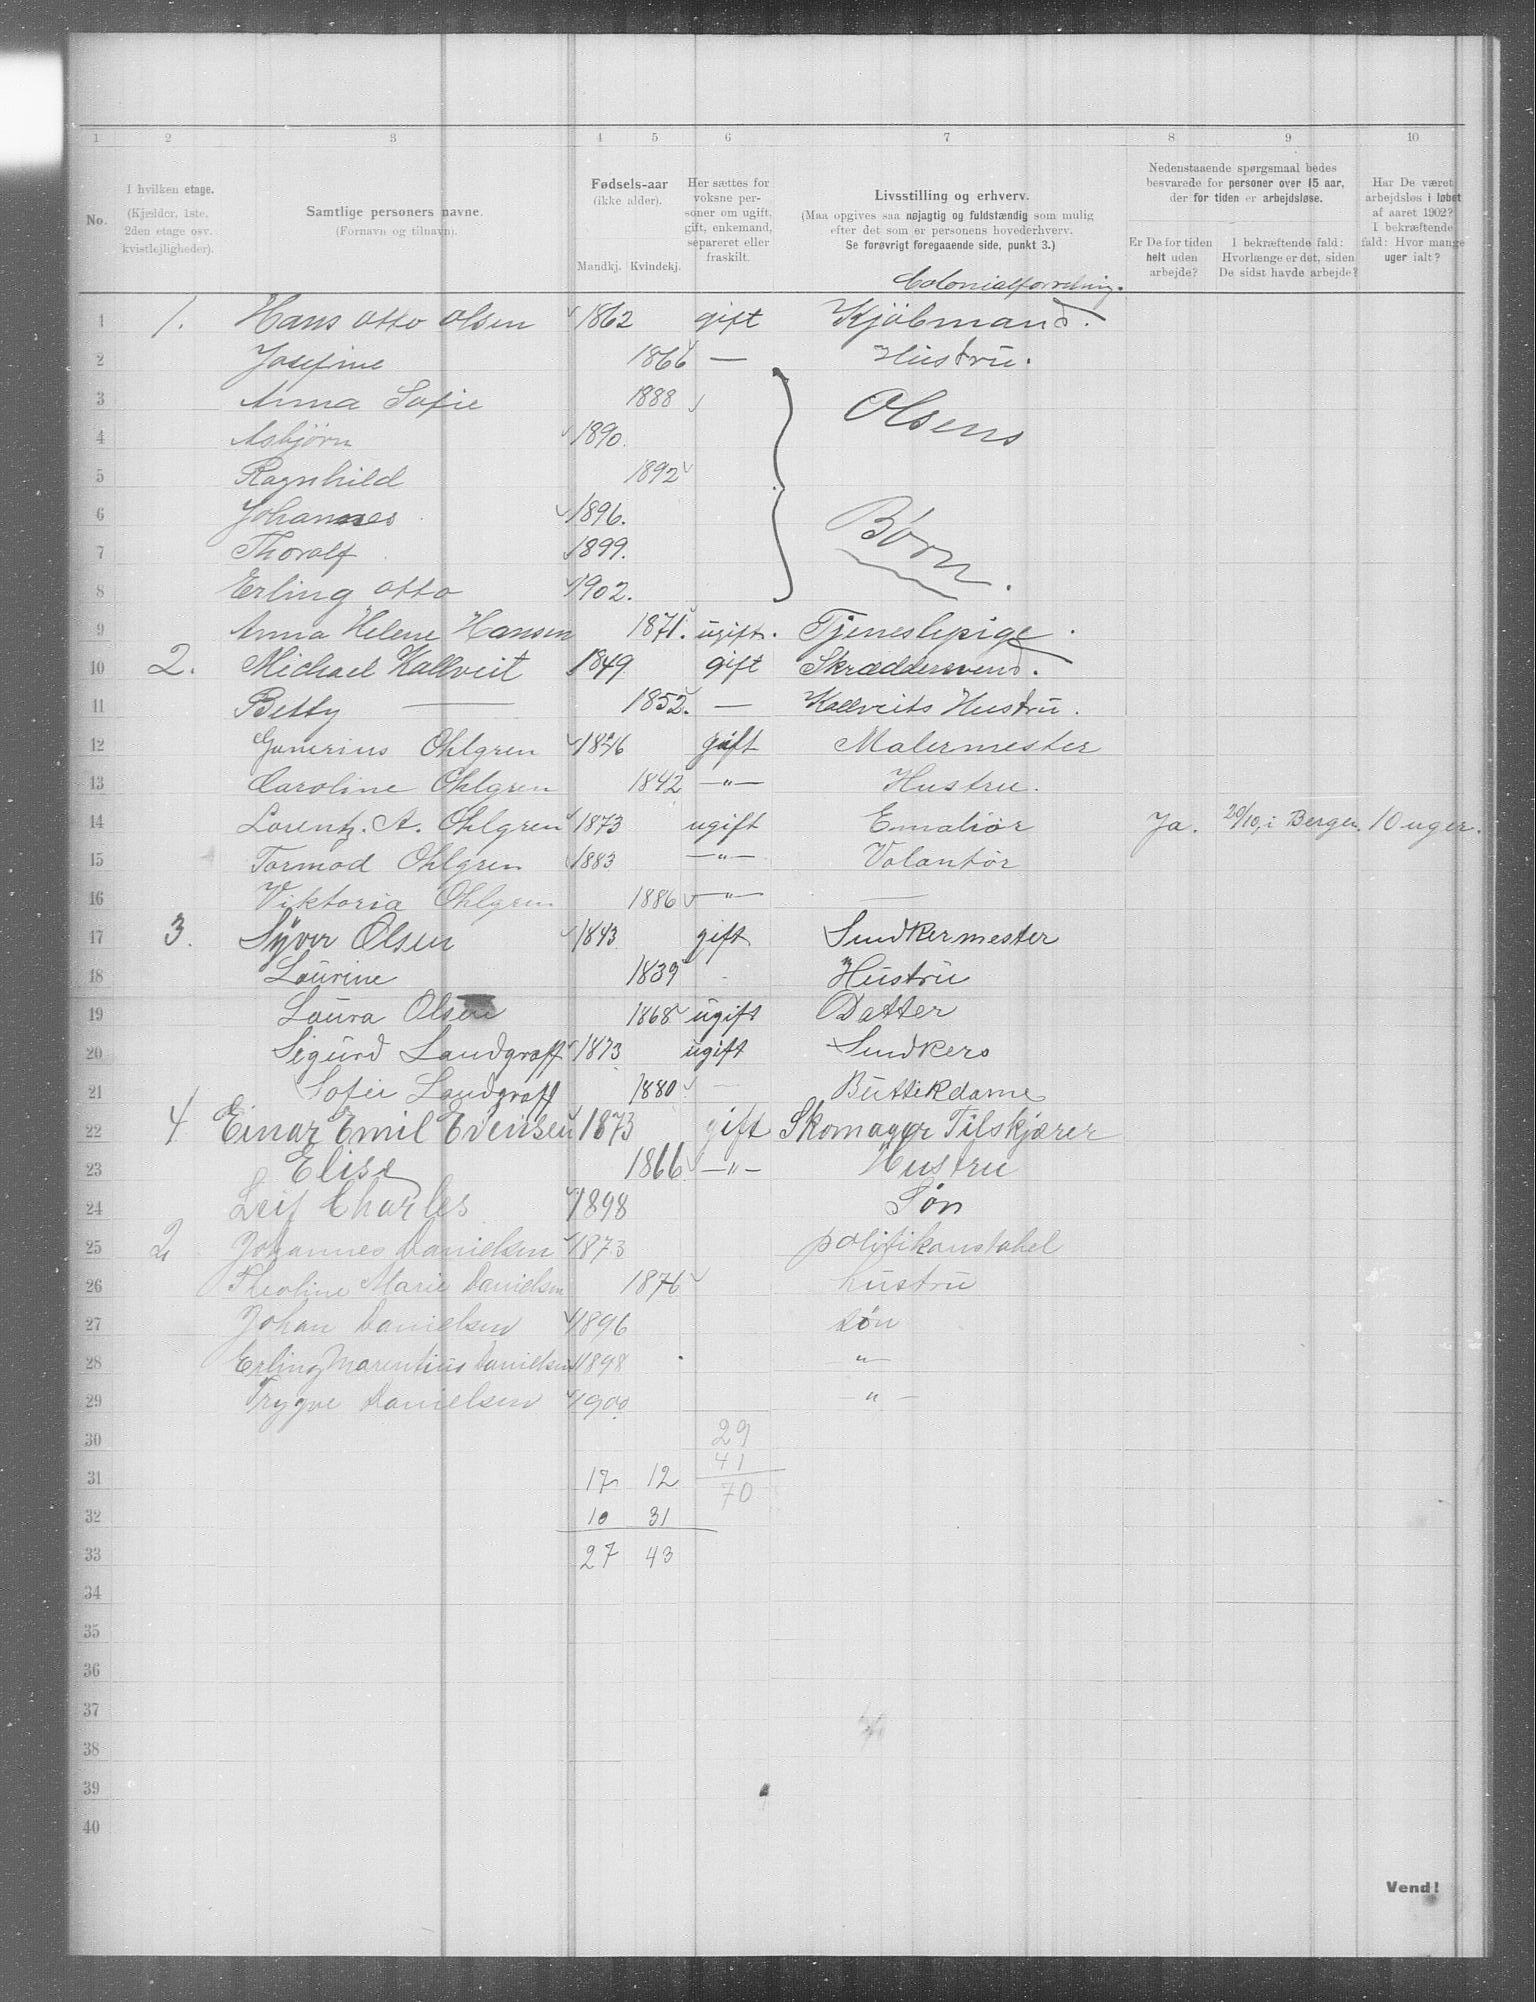 1 2 3 4 5 6 7 8 9 10
No.
I hvilken etage.
(Kjælder, 1ste,
2den etage osv.
kvistlejligheder).
Samtlige personers navne.
(Fornavn og tilnavn).
Fødsels-aar
(ikke alder).
Mandkj. Kvindekj.
Her sættes for
voksne per-
soner om ugift,
gift, enkemand,
separeret eller
fraskilt.
Livsstilling og erhverv.
(Maa opgives saa nøjagtig og fuldstændig som mulig
efter det som er personens hovederhverv.
Se forøvrigt foregaaende side, punkt 3.)
Nedenstaaende spørgsmaal bedes
besvarede for personer over 15 aar,
der for tiden er arbejdsløse.
Er De for tiden
helt uden
arbejde?
I bekræftende fald:
Hvorlænge er det, siden
De sidst havde arbejde?
Har De været
arbejdsløs i løbet
af aaret 1902?
I bekræftende
fald: Hvor mange
uger ialt?
Colonialforretning.
1 1. Hans Otto Olsen 1862 gift Kjöbmand.
2 Josefine 1866 — Hustru.
3 Anna Sofie 1888 Olsens
4 Asbjørn 1890.
5 Ragnhild 1892
6 Johannes 1896. Børn.
7 Thoralf 1899.
8 Erling Otto 1902.
9 Anna Helene Hansen 1871. ugift. Tjenestepige.
10 2. Michael Kallveit 1849 gift Skræddersvend.
11 Betty — 1852. — Kallveits Hustru.
12 Ohlgren gift Malermester
13 Caroline Ohlgren 1842 —"— Hustru.
14 Lorentz. A. Ohlgren 1873 ugift Ja. 20/10, i Bergen. 10 uger.
15 Tormod Ohlgren 1883 —"— Volantør
16 Viktoria Ohlgren 1886 —"— —
17 3. Syver Olsen 1843 gift Snedkermester
18 Laurine 1839 Hustru
19 Laura Olsen 1868 ugift Datter
20 Sigurd Landgraff 1873 ugift Snedkers
21 Sofie Landgraff 1880 — Buttikdame
22 4 Einar Emil Evensen 1873 gift Skomager Tilskjærer
23 Elise 1866 —"— Hustru
24 Leif Charles 1898 Søn
25 2 Johannes Danielsen 1873 politikonstabel
26 Theoline Marie Danielsen 1876 hustru
27 Johan Danielsen 1896 søn
28 Erling Marentius Danielsen 1898 "
29 Trygve Danielsen 1900 —"—
30 29
41
31 17 12 70
32 10 31
33 27 43
34
35
36
37
38
39
40
Vend!